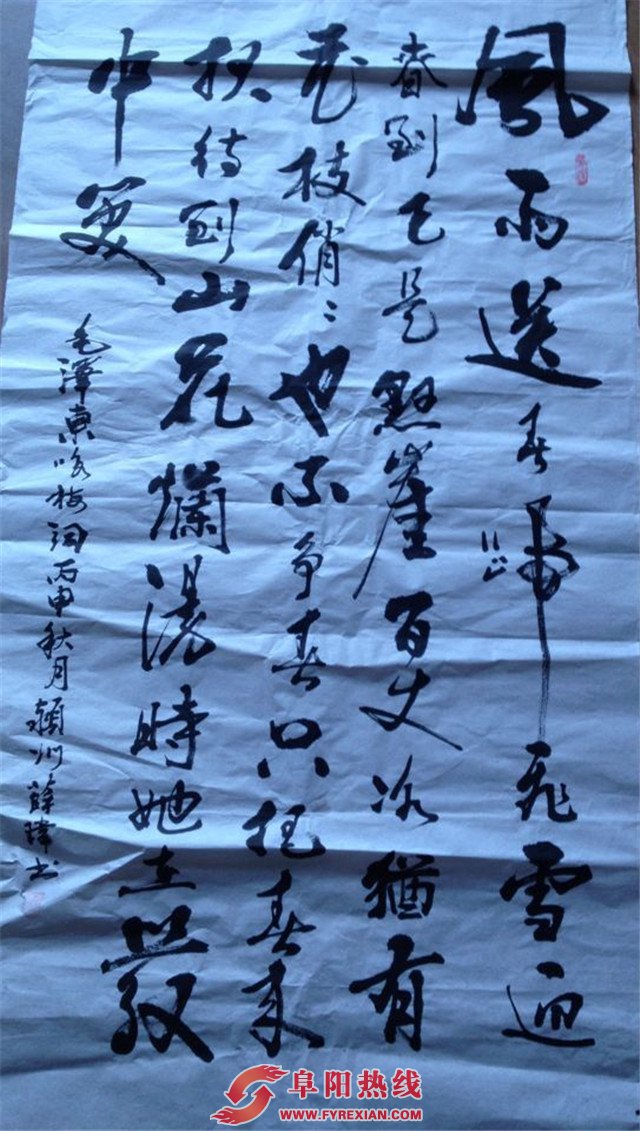 風雨送春歸飛雪迎
春到已是懸崖百丈冰猶有
花枝俏〻也不争春只把春来
报待到山花爛漫時她在叢
中笑
毛澤東咏梅词丙申秋月颖州薛书
阜阳热线
WWW.FYREXIAN.COM